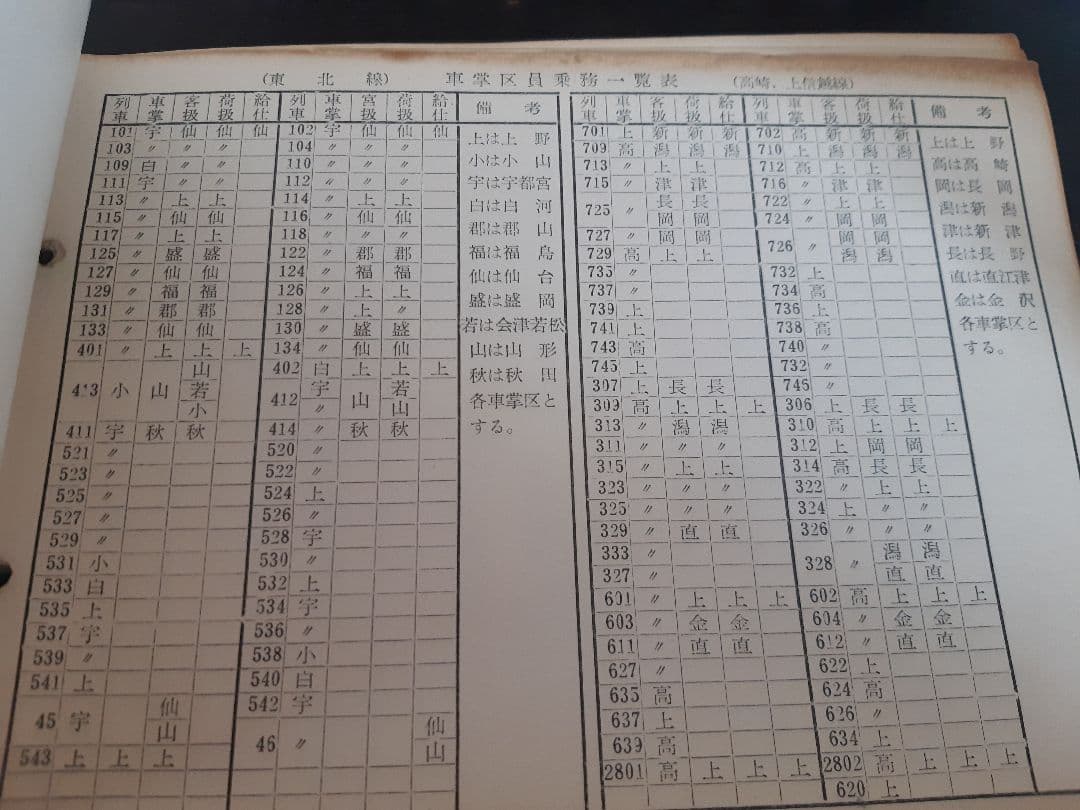 (東北線) 車掌区員乗務一覧表 (高崎、上信越線)
列車 車掌 客扱 荷扱 給仕 列車 車掌 宮扱 荷扱 給仕 備考
101 宇 仙 仙 仙 102 宇 仙 仙 仙 上は上野
103 〃 〃 〃 104 〃 〃 〃 小は小山
109 白 〃 〃 110 〃 〃 〃 宇は宇都宮
111 宇 〃 〃 112 〃 〃 〃 白は白河
113 〃 上 上 114 〃 上 上 郡は郡山
115 〃 仙 仙 116 〃 仙 仙 福は福島
117 〃 上 上 118 〃 〃 〃 仙は仙台
125 〃 盛 盛 122 〃 郡 郡 盛は盛岡
127 〃 仙 仙 124 〃 福 福 若は会津若松
129 〃 福 福 126 〃 上 上 山は山形
131 〃 郡 郡 128 〃 上 〃 秋は秋田
133 〃 仙 仙 130 〃 盛 盛 各車掌区と
401 〃 上 上 上 134 〃 仙 仙 する。
413 小 山 山 若 小 402 白 上 上 上
412 宇 〃 山 若 山
411 宇 秋 秋 414 〃 秋 秋
521 〃 520 〃
523 〃 522 〃
525 〃 524 上
527 〃 526 〃
529 〃 528 宇
531 小 530 〃
533 白 532 上
535 上 534 宇
537 宇 536 〃
539 〃 538 小
541 上 540 白
45 宇 仙 山 542 宇
543 上 上 上 46 〃 仙 山
列車 車掌 客扱 荷扱 給仕 列車 車掌 客扱 荷扱 給仕 備考
701 上 新 新 新 702 高 新 新 新 上は上野
709 高 潟 潟 潟 710 上 潟 潟 潟 高は高崎
713 〃 上 上 712 高 上 上 岡は長岡
715 〃 津 津 716 〃 津 津 潟は新潟
725 〃 長 長 岡 岡 722 〃 上 上 津は新津
724 〃 岡 岡 長は長野
727 〃 岡 岡 726 〃 岡 岡 潟 潟 直は直江津
729 高 上 上 金は金沢
735 〃 732 上 各車掌区と
737 〃 734 高 する。
739 上 736 上
741 上 738 高
743 高 740 〃
745 上 732 〃
307 上 長 長 746 〃
309 高 上 上 上 306 上 長 長
313 〃 潟 潟 310 高 上 上 上
311 〃 〃 〃 312 上 岡 岡
315 〃 上 上 314 高 長 長
323 〃 〃 〃 322 〃 上 上
325 〃 〃 〃 324 上 〃 〃
329 〃 直 直 326 〃 〃 〃
333 〃 328 〃 潟 潟 直 直
327 〃
601 〃 上 上 上 602 高 上 上 上
603 〃 金 金 604 〃 金 金
611 〃 直 直 612 〃 直 直
627 〃 622 上
635 高 624 高
637 上 626 〃
639 高 634 上
2801 高 上 上 上 2802 高 上 上 上
620 上